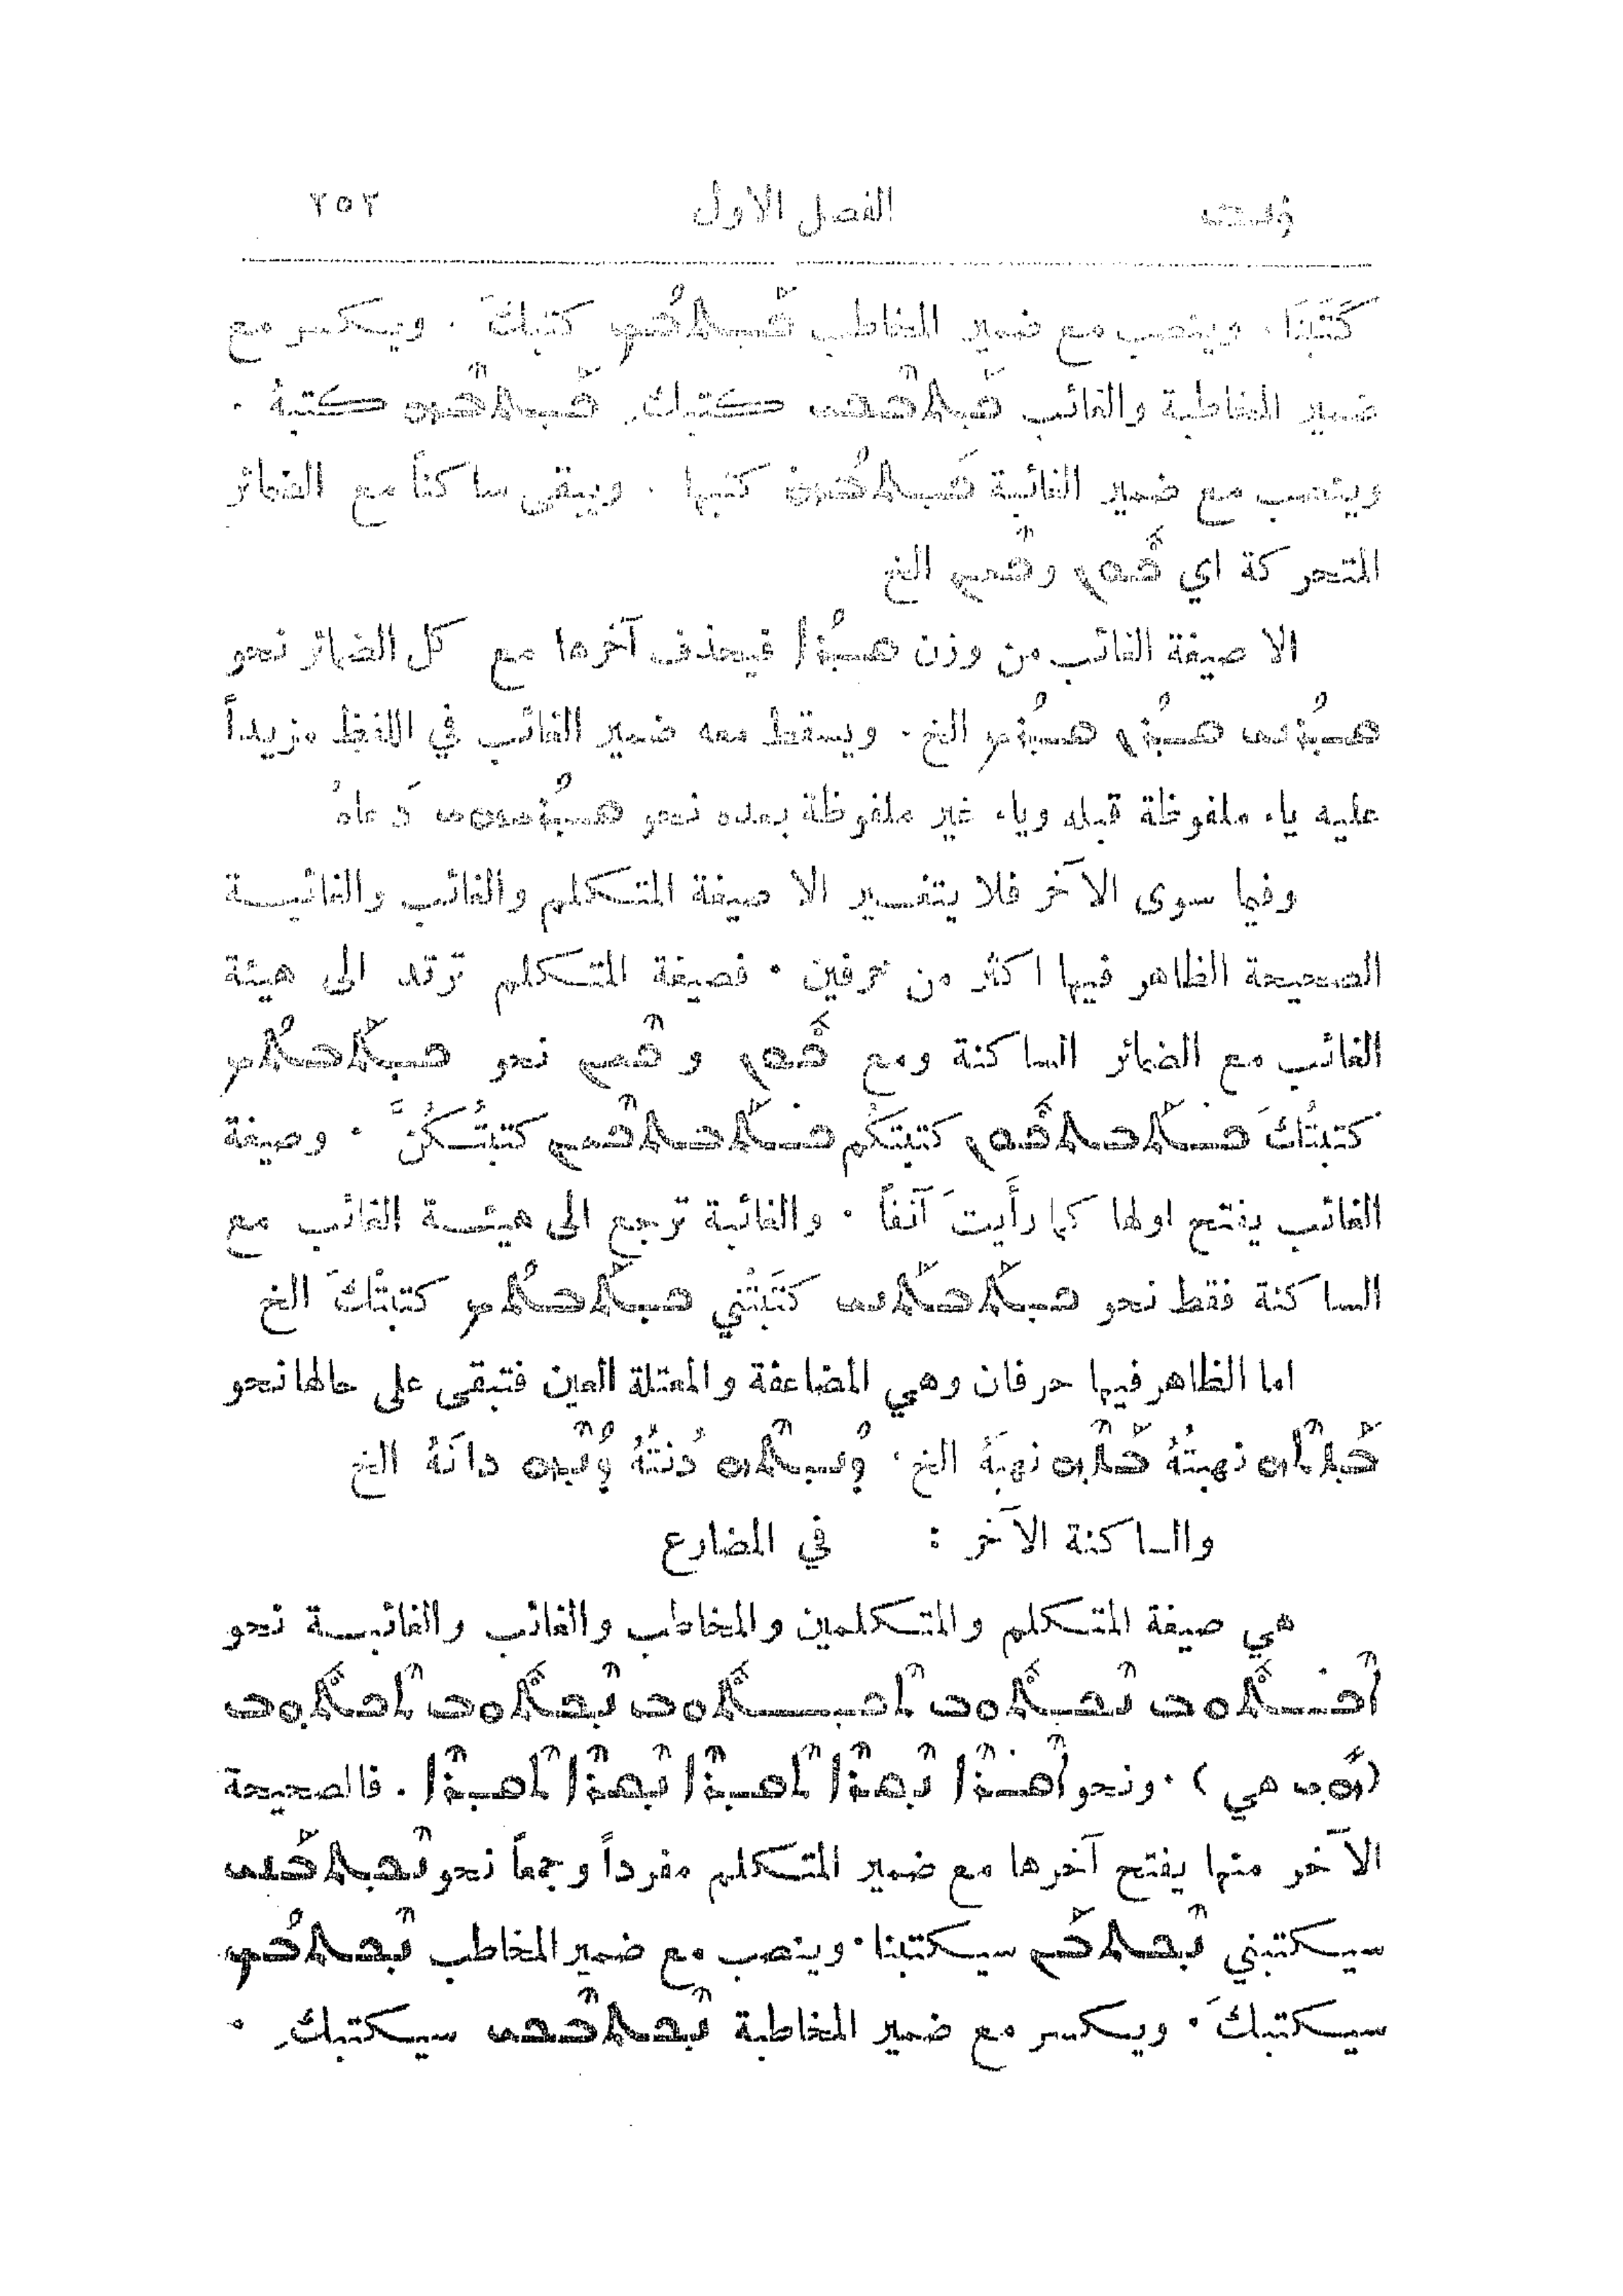 الفصل الاول ٢٥٣
كَتَبَنَا . وينصب مع ضمير المخاطب ܟܰܬܒܳܟ كتبكَ . ويكسر مع
ضمير المخاطبة والغائب ܟܰܬܒܶܟܝ كتبكِ ܟܰܬܒܶܗ كتبهُ .
وينصب مع ضمير الغائبة ܟܰܬܒܳܗ كتبها . ويبقى ساكناً مع الضمائر
المتحركة اي ܟܽܘܢ وܟܶܝܢ الخ
الا صيغة الغائب من وزن ܩܪܳܐ فيحذف آخرها مع كل الضمائر نحو
ܩܪܳܢܝ ܩܪܳܢ ܩܪܳܟ الخ . ويسقط معه ضمير الغائب في اللفظ مزيداً
عليه ياء ملفوظة قبله وياء غير ملفوظة بعده نحو ܩܪܳܝܗܝ دَعاهُ
وفيما سوى الآخر فلا يتغير الا صيغة المتكلم والغائب والغائبة
الصحيحة الظاهر فيها اكثر من حرفين . فصيغة المتكلم ترتد الى هيئة
الغائب مع الضمائر الساكنة ومع ܟܽܘܢ و ܟܶܝܢ نحو ܟܬܰܒܬܳܟ
كتبتُكَ ܟܬܰܒܬܟܽܘܢ كتبتكُم ܟܬܰܒܬܟܶܝܢ كتبتُكُنَّ . وصيغة
الغائب يفتح اولها كما رأَيتَ آنفاً . والغائبة ترجع الى هيئة الغائب مع
الساكنة فقط نحو ܟܬܰܒܬܰܢܝ كتَبَتْني ܟܬܰܒܬܳܟ كتبتْكَ الخ
اما الظاهر فيها حرفان وهي المضاعفة والمعتلة العين فتبقى على حالها نحو
ܒܰܙܬܶܗ نهبتُهُ ܒܰܙܶܗ نهبَهُ الخ . ܕܳܢܬܶܗ دُنتُهُ ܕܳܢܶܗ دانَهُ الخ
والساكنة الآخر : في المضارع
هي صيغة المتكلم والمتكلمين والمخاطب والغائب والغائبة نحو
ܐܶܟܬܽܘܒ ܢܶܟܬܽܘܒ ܬܶܟܬܽܘܒ ܢܶܟܬܽܘܒ ܬܶܟܬܽܘܒ
(ܗܝ هي) . ونحو ܐܶܩܪܶܐ ܢܶܩܪܶܐ ܬܶܩܪܶܐ ܢܶܩܪܶܐ ܬܶܩܪܶܐ . فالصحيحة
الآخر منها يفتح آخرها مع ضمير المتكلم مفرداً وجمعاً نحو ܢܶܟܬܒܰܢܝ
سيكتبني ܢܶܟܬܒܰܢ سيكتبنا . وينصب مع ضمير المخاطب ܢܶܟܬܒܳܟ
سيكتبكَ . ويكسر مع ضمير المخاطبة ܢܶܟܬܒܶܟܝ سيكتبكِ .